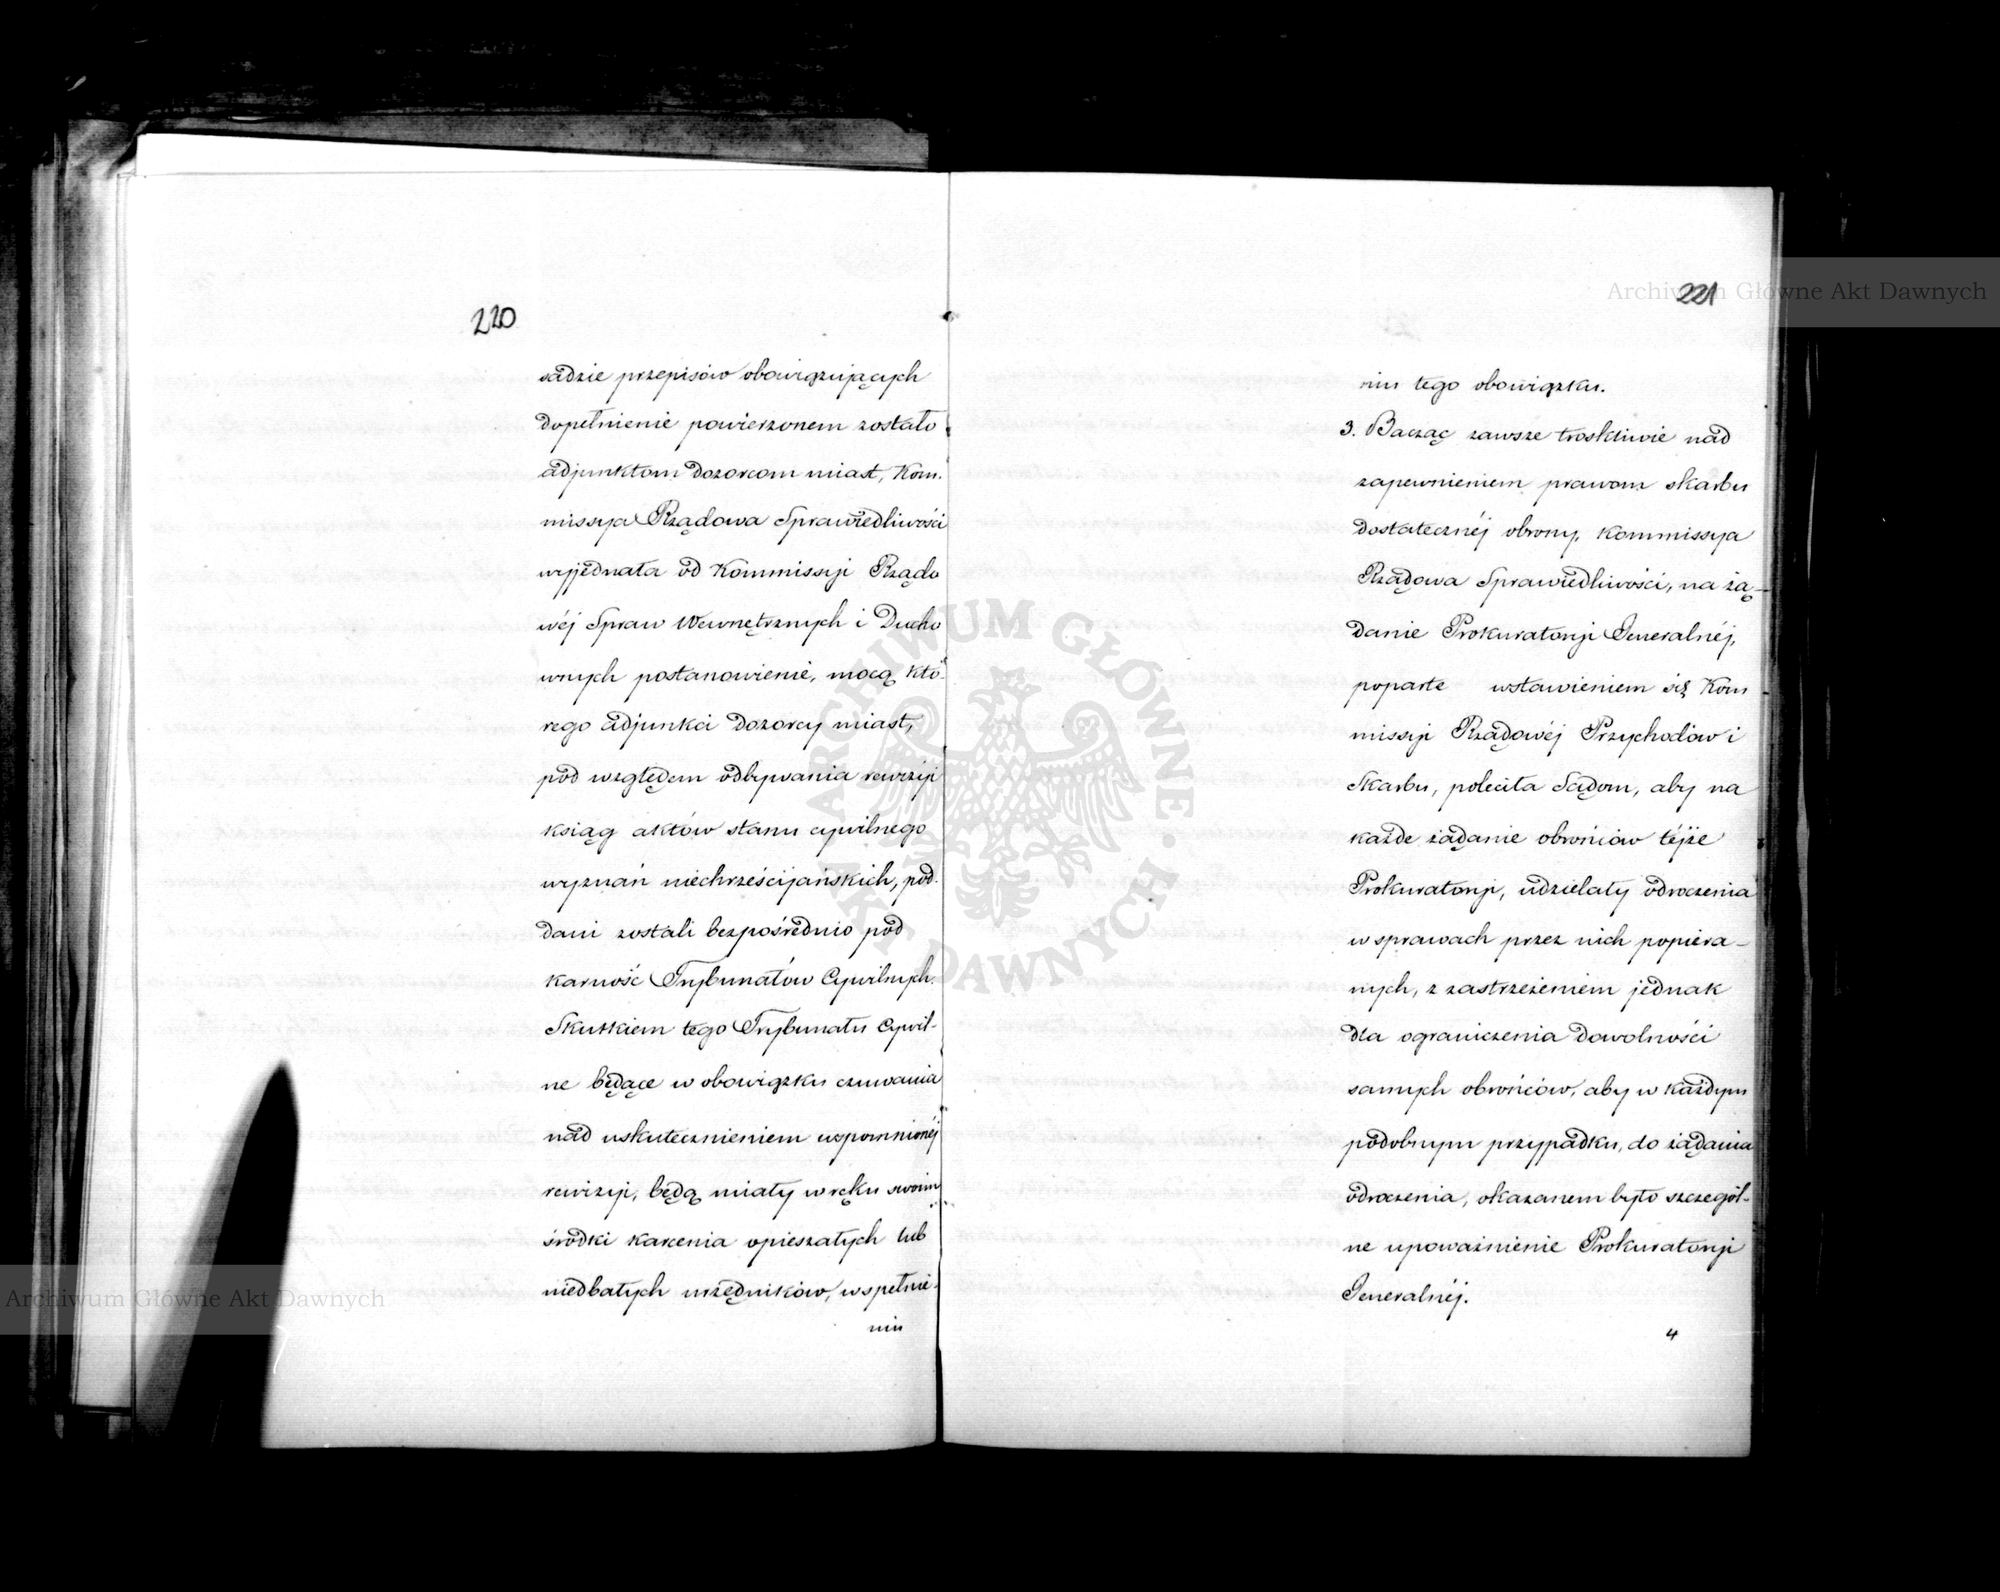 220
sadzie przepisów obowiązujących
dopełnienie powierzonem zostało
adjunktom dozorcom miast, Kom-
missya Rządowa Sprawiedliwości
wyjednała od Kommissyi Rządo
wéj Spraw Wewnętrznych i Ducho
wnych postanowienie, mocą któ-
rego adjunkci dozorcy miast,
pod względem odbywania rewizyi
ksiąg aktów stanu cywilnego
wyznań niechrześcijańskich, pod-
dani zostali bezpośrednio pod
karność Trybunałów Cywilnych.
Skutkiem tego Trybunały Cywil-
ne będące w obowiązku czuwania
nad uskutecznieniem wspomnionéj
rewizyi, będą miały w ręku swoim
środki karcenia opieszałych lub
niedbałych urzędników, w spełnie-
niu
221
niu tego obowiązku.
3. Bacząc zawsze troskliwie nad
zapewnieniem prawom skarbu
dostatecznéj obrony, Kommissya
Rządowa Sprawiedliwości, na żą-
danie Prokuratoryi Generalnéj,
poparte wstawieniem się Kom
missyi Rządowéj Przychodów i
Skarbu, poleciła Sądom, aby na
każde żądanie obrońców téjże
Prokuratoryi, udzielały odroczenia
w sprawach przez nich popiera-
nych, z zastrzeżeniem jednak
dla ograniczenia dowolności
samych obrońców, aby w każdym
podobnym przypadku, do żądania
odroczenia, okazanem było szczegól-
ne upoważnienie Prokuratoryi
Generalnéj.
4
Archiwum Główne Akt Dawnych
Archiwum Główne Akt Dawnych
ARCHIWUM GŁÓWNE AKT DAWNYCH